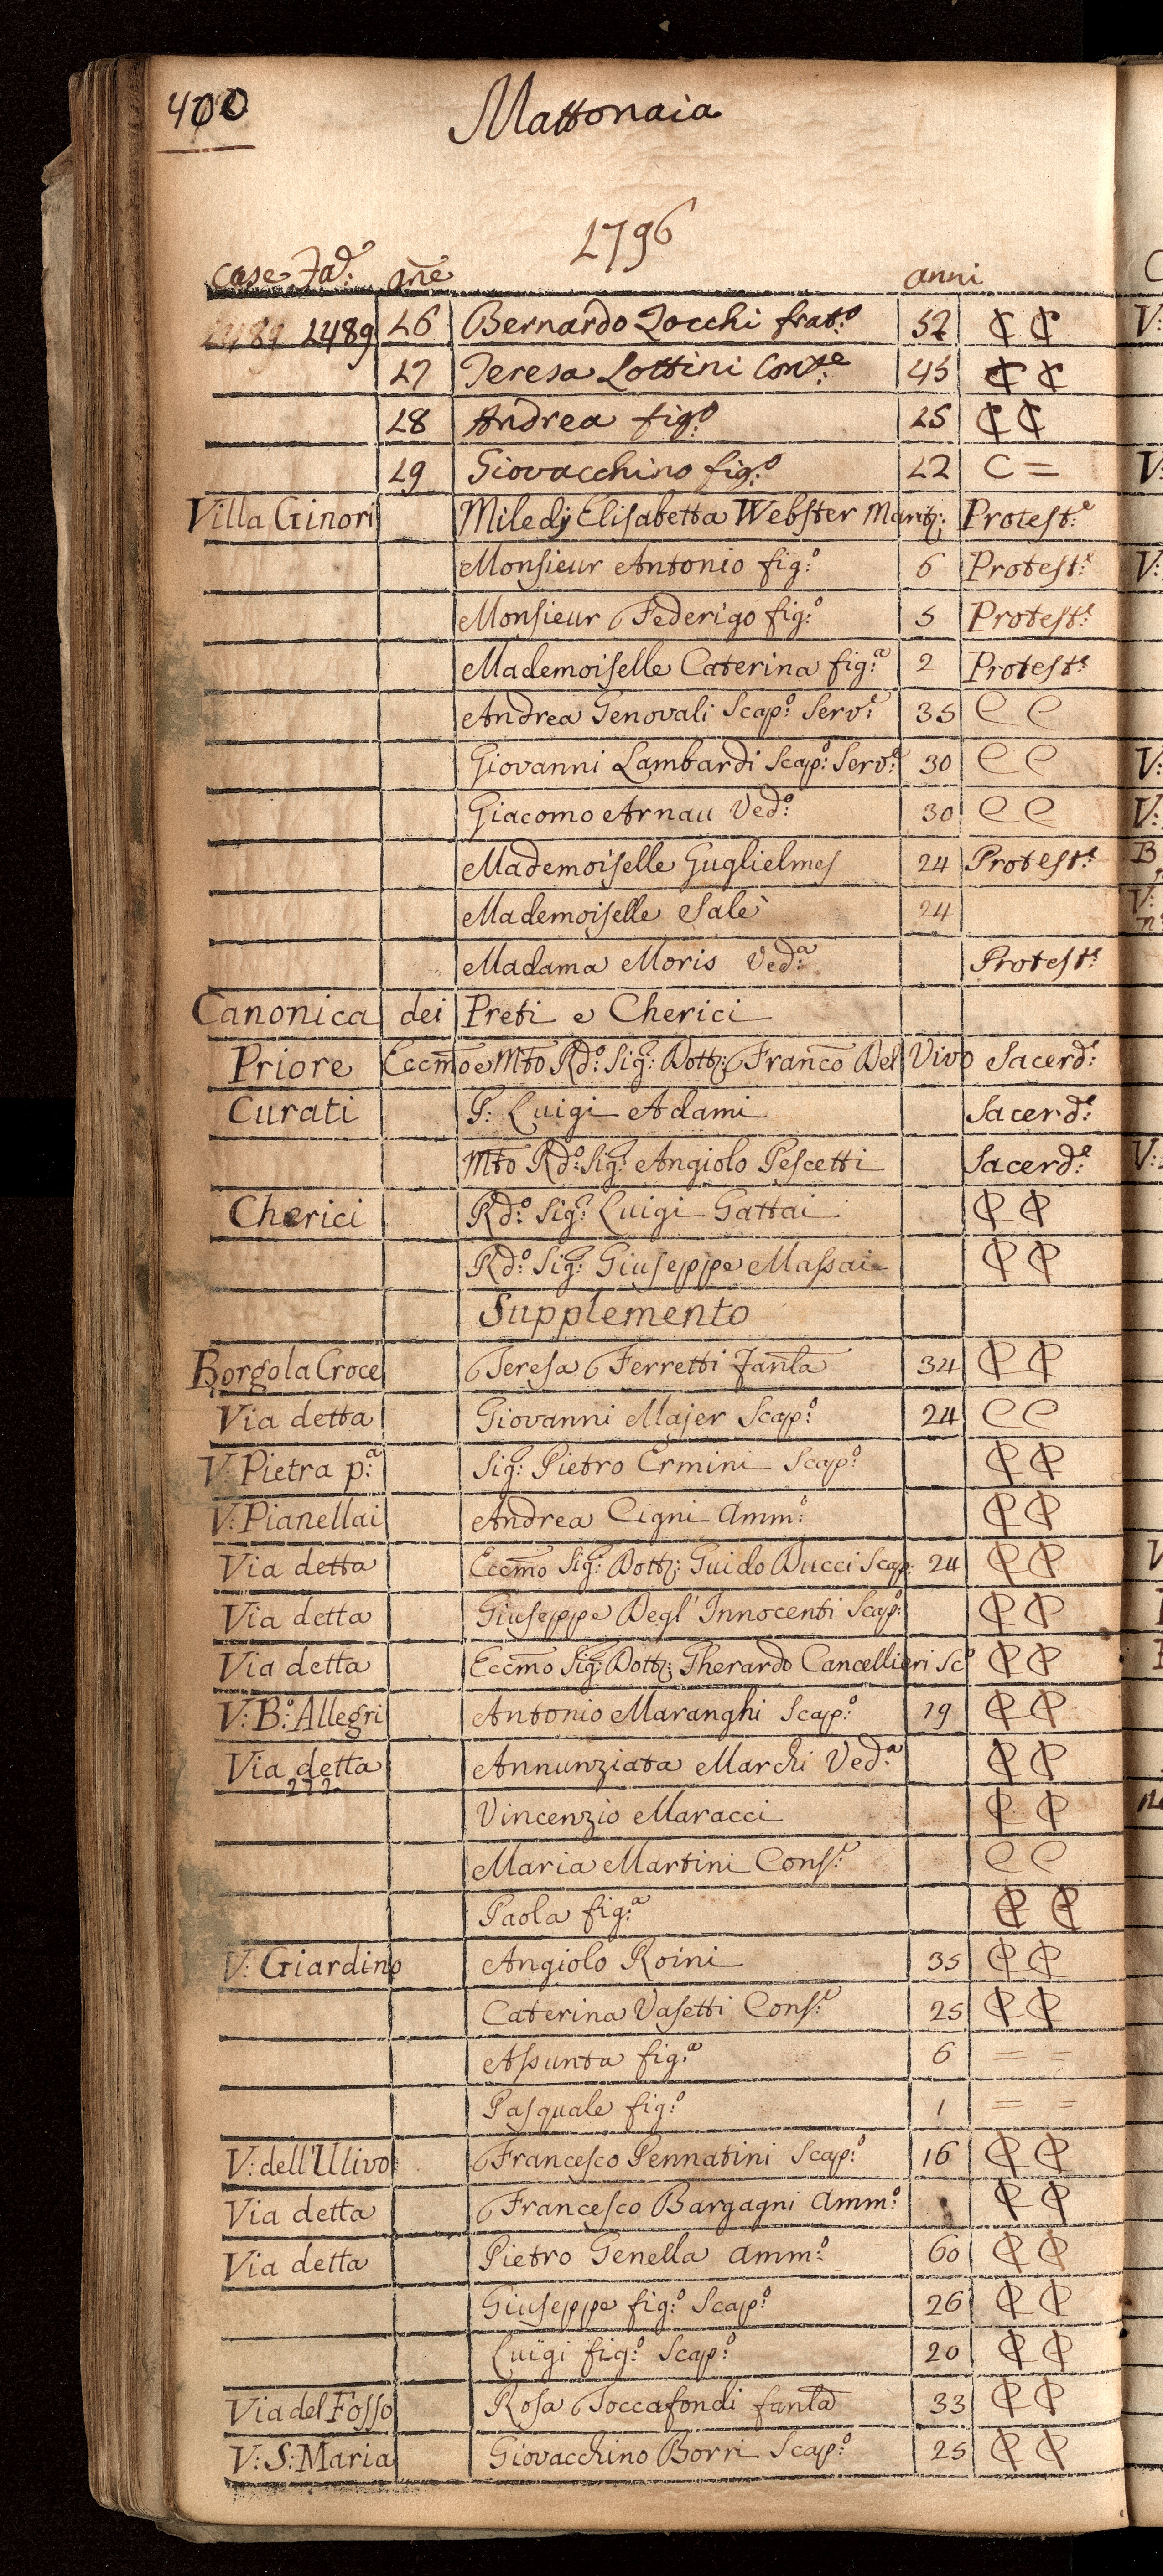 400
Mattonaia
1796
Case Fad: Aῆe anni
1489 1489 16 Bernardo Zocchi frat:o 52 C C
17 Teresa Lottini Cons:e 45 C C
18 Andrea fig:o 25 C C
19 Giovacchino fig:o 12 C =
Villa Ginori Miledj Elisabetta Webster Marit: Protest:e
Monsieur Antonio fig:o 6 Protest:e
Monsieur Federigo fig:o 5 Protest:e
Mademoiselle Caterina fig:a 2 Protest:e
Andrea Genovali Scap:o Serv:e 35 C C
Giovanni Lambardi Scap:o Serv:e 30 C C
Giacomo Arnau Ved:o 30 C C
Mademoiselle Guglielmes 24 Protest:e
Mademoiselle Salè 24
Madama Moris Ved:a Protest:e
Canonica dei Preti e Cherici
Priore Eccmo e Mto Rdo: Sig: Dott: Franco Del Vivo Sacerd:e
Curati P: Luigi Adami Sacerd:e
Mto Rdo: Sig: Angiolo Pescetti Sacerd:e
Cherici Rdo: Sig: Luigi Gattai C C
Rdo: Sig: Giuseppe Massai C C
Supplemento
Borgo la Croce Teresa Ferretti Fanla 34 C C
Via detta Giovanni Majer Scap:o 24 C C
V: Pietra p:a Sig: Pietro Ermini Scap:o C C
V: Pianellai Andrea Cigni Amm:o C C
Via detta Eccmo Sig: Dott: Guido Ducci Scap: 24 C C
Via detta Giuseppe Degl' Innocenti Scap:o C C
Via detta Eccmo Sig: Dott: Gherardo Cancellieri Sc:o C C
V: B:o Allegri Antonio Maranghi Scap:o 19 C C
Via detta Annunziata Marchi Ved:a C C
272
Vincenzio Maracci C C
Maria Martini Cons:e C C
Paola fig:a C C
V: Giardino Angiolo Roini 35 C C
Caterina Vasetti Cons:e 25 C C
Assunta fig:a 6 = =
Pasquale fig:o 1 = =
V: dell'Ulivo Francesco Pennatini Scap:o 16 C C
Via detta Francesco Bargagni Amm:o C C
Via detta Pietro Genella Amm:o 60 C C
Giuseppe fig:o Scap:o 26 C C
Luigi fig:o Scap:o 20 C C
Via del Fosso Rosa Toccafondi fanla 33 C C
V: S: Maria Giovacchino Borri Scap:o 25 C C